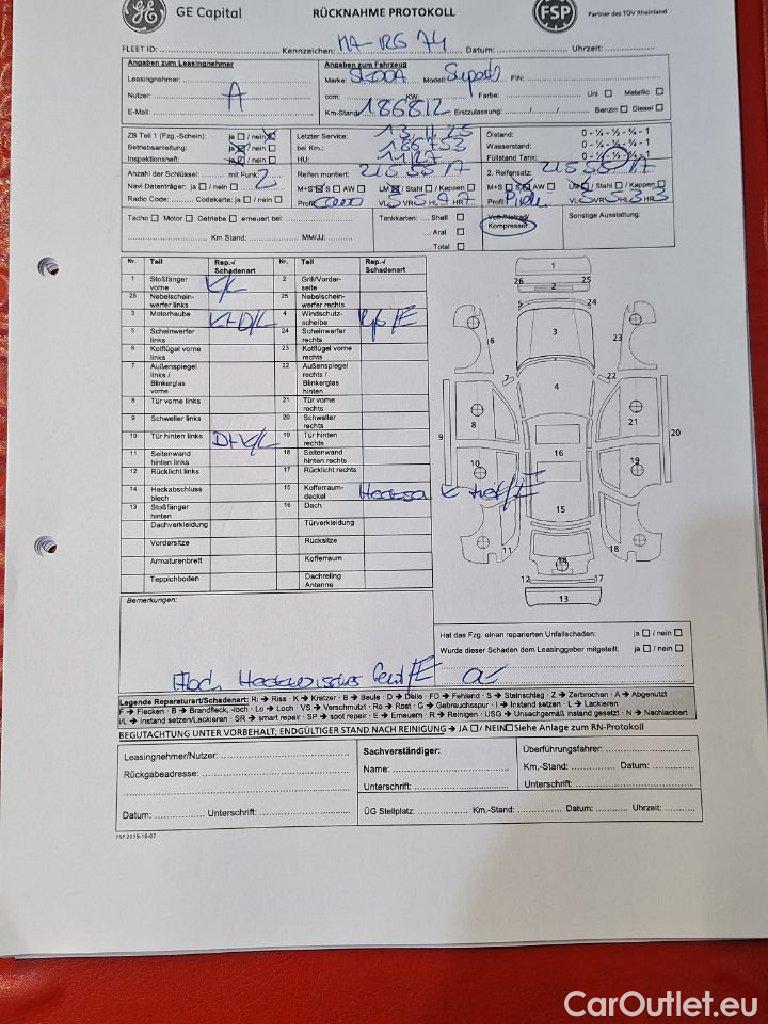 GE Capital RÜCKNAHME PROTOKOLL FSP Partner des TÜV Rheinland
FLEET ID: Kennzeichen: MA-RG 74 Datum: Uhrzeit:
Angaben zum Leasingnehmer Angaben zum Fahrzeug
Leasingnehmer: Marke: SKODA Modell: Superb FIN:
Nutzer: A ccm: KW: Farbe: Uni ☐ Metallic ☐
E-Mail: Km-Stand: 186812 Erstzulassung: / / Benzin ☐ Diesel ☐
ZB Teil 1 (Fzg.-Schein): ja ☐ / nein ☒ Letzter Service: 13.11.25 Ölstand: 0 - ¼ - ½ - ¾ - 1
Betriebsanleitung: ja ☒ / nein ☐ bei Km.: 186753 Wasserstand: 0 - ¼ - ½ - ¾ - 1
Inspektionsheft: ja ☒ / nein ☐ HU: 11.27 Füllstand Tank: 0 - ¼ - ½ - ¾ - 1
Anzahl der Schlüssel: mit Funk: 2 Reifen montiert: 215 55 17 2. Reifensatz: 215 55 17
Navi Datenträger: ja ☐ / nein ☐ M+S ☒ S ☐ AW ☐ LM ☒ / Stahl ☐ / Kappen ☐ M+S ☐ S ☒ AW ☐ LM ☐ / Stahl ☐ / Kappen ☐
Radio Code: Codekarte: ja ☐ / nein ☐ Profil VL VR HL HR 7 Profil VL 5 VR 5 HL 3 HR 3
Tacho ☐ Motor ☐ Getriebe ☐ erneuert bei: Tankkarten: Shell ☐ Voll-/Notrad/ Sonstige Ausstattung:
Aral ☐ Kompressor
Km Stand: MM/JJ: Total ☐
Nr. Teil Rep.-/ Schadenart Nr. Teil Rep.-/ Schadenart
1 Stoßfänger vorne K/L 2 Grill/Vorderseite
26 Nebelscheinwerfer links 25 Nebelscheinwerfer rechts
3 Motorhaube K+D/L 4 Windschutzscheibe /E
5 Scheinwerfer links 24 Scheinwerfer rechts
6 Kotflügel vorne links 23 Kotflügel vorne rechts
7 Außenspiegel links / Blinkerglas vorne 22 Außenspiegel rechts / Blinkerglas hinten
8 Tür vorne links 21 Tür vorne rechts
9 Schweller links 20 Schweller rechts
10 Tür hinten links D+K/L 19 Tür hinten rechts
11 Seitenwand hinten links 18 Seitenwand hinten rechts
12 Rücklicht links 17 Rücklicht rechts
14 Heckabschlussblech 15 Kofferraumdeckel K tief/E
13 Stoßfänger hinten 16 Dach
Dachverkleidung Türverkleidung
Vordersitze Rücksitze
Armaturenbrett Kofferraum
Teppichboden Dachreling Antenne
1
26 25
2
5 24
3
6 23
7 22
4
8 21
9 20
10 16 19
15
11 18
14
12 17
13
Bemerkungen:
Hat das Fzg. einen reparierten Unfallschaden: ja ☐ / nein ☐
Wurde dieser Schaden dem Leasinggeber mitgeteilt: ja ☐ / nein ☐
Legende Reparaturart/Schadenart: Ri → Riss · K → Kratzer · B → Beule · D → Delle · FD → Fehlend · S → Steinschlag · Z → Zerbrochen · A → Abgenutzt
F → Flecken · B → Brandfleck, -loch · Lo → Loch · VS → Verschmutzt · Ro → Rost · G → Gebrauchsspur · I → Instand setzen · L → Lackieren
I/L → Instand setzen/Lackieren · SR → smart repair · SP → spot repair · E → Erneuern · R → Reinigen · USG → Unsachgemäß instand gesetzt · N → Nachlackiert
BEGUTACHTUNG UNTER VORBEHALT; ENDGÜLTIGER STAND NACH REINIGUNG → JA ☐ / NEIN ☐ Siehe Anlage zum RN-Protokoll
Leasingnehmer/Nutzer: Sachverständiger: Überführungsfahrer:
Rückgabeadresse: Name: Km.-Stand: Datum:
Unterschrift: Unterschrift:
Datum: Unterschrift: ÜG Stellplatz: Km.-Stand: Datum: Uhrzeit:
FSP 2015-10-07
CarOutlet.eu